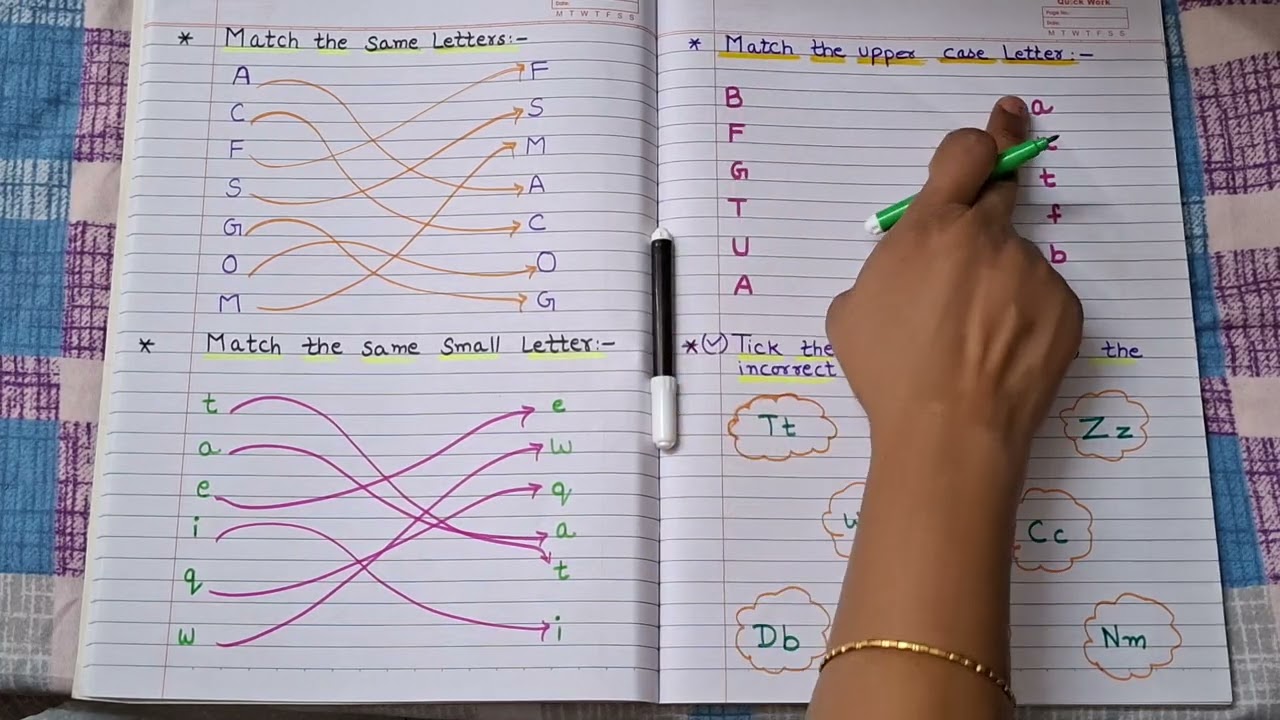 Date:
M T W T F S S
* Match the same Letters:-
A F
C S
F M
S A
G C
O O
M G
* Match the same small Letter:-
t e
a w
e q
i a
q t
w i
Quick Work
Page No.:
Date:
M T W T F S S
* Match the upper case Letter:-
B a
F
G t
T f
U b
A
* Tick the the
incorrect
Tt Zz
Cc
Db Nm